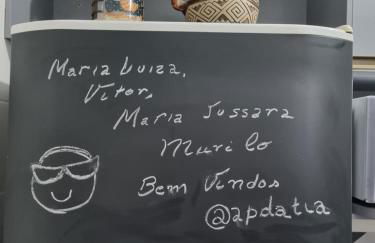 Maria Luiza,
Vitor,
Maria Jussara
Murilo
Bem Vindos
@apdatia